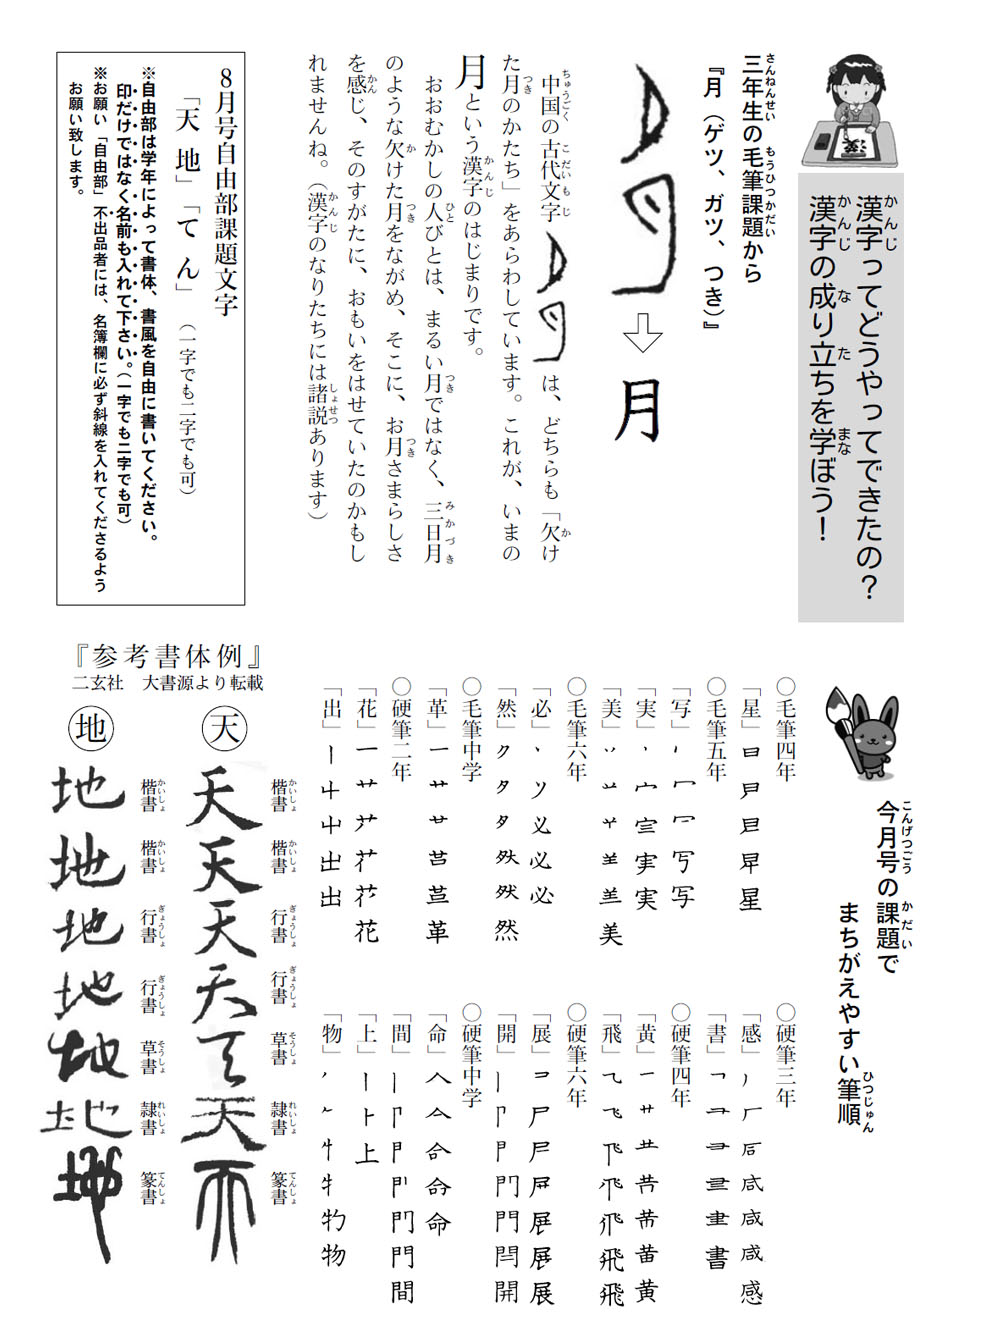 漢字ってどうやってできたの？
漢字の成り立ちを学ぼう！
三年生の毛筆課題から
『月（ゲツ、ガツ、つき）』
月
中国の古代文字は、どちらも「欠け
た月のかたち」をあらわしています。これが、いまの
月という漢字のはじまりです。
おおむかしの人びとは、まるい月ではなく、三日月
のような欠けた月をながめ、そこに、お月さまらしさ
を感じ、そのすがたに、おもいをはせていたのかもし
れませんね。（漢字のなりたちには諸説あります）
8月号自由部課題文字
「天 地」「て ん」（一字でも二字でも可）
※自由部は学年によって書体、書風を自由に書いてください。
印だけではなく名前も入れて下さい。（一字でも二字でも可）
※お願い「自由部」不出品者には、名簿欄に必ず斜線を入れてくださるよう
お願い致します。
今月号の課題で
まちがえやすい筆順
〇毛筆四年
「星」
〇毛筆五年
「写」
「実」
「美」
〇毛筆六年
「必」
「然」
〇毛筆中学
「革」
〇硬筆二年
「花」
「出」
〇硬筆三年
「感」
「書」
〇硬筆四年
「黄」
「飛」
〇硬筆六年
「展」
「開」
〇硬筆中学
「命」
「間」
「上」
「物」
『参考書体例』
二玄社　大書源より転載
天
楷書 天
楷書 天
行書 天
行書 天
草書 天
隷書 天
篆書 天
地
楷書 地
楷書 地
行書 地
行書 地
草書 地
隷書 地
篆書 地